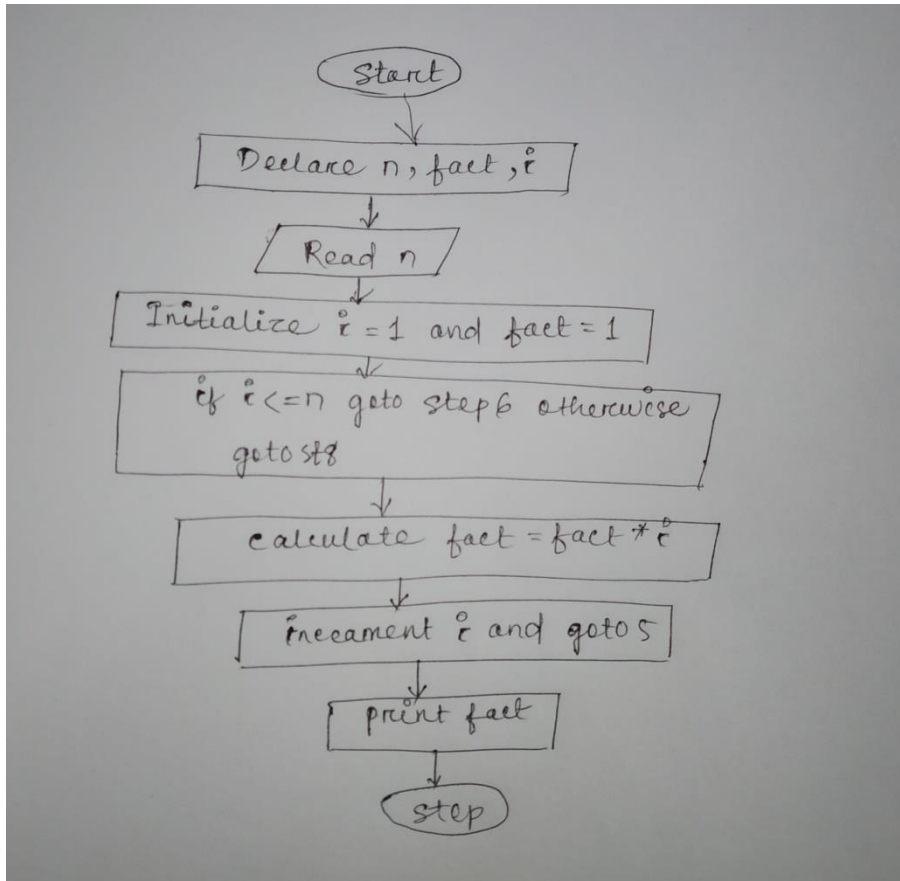 Start
Declare n, fact, i
Read n
Initialize i = 1 and fact = 1
if i <= n goto step 6 otherwise
goto st8
calculate fact = fact * i
inccament i and goto 5
print fact
step